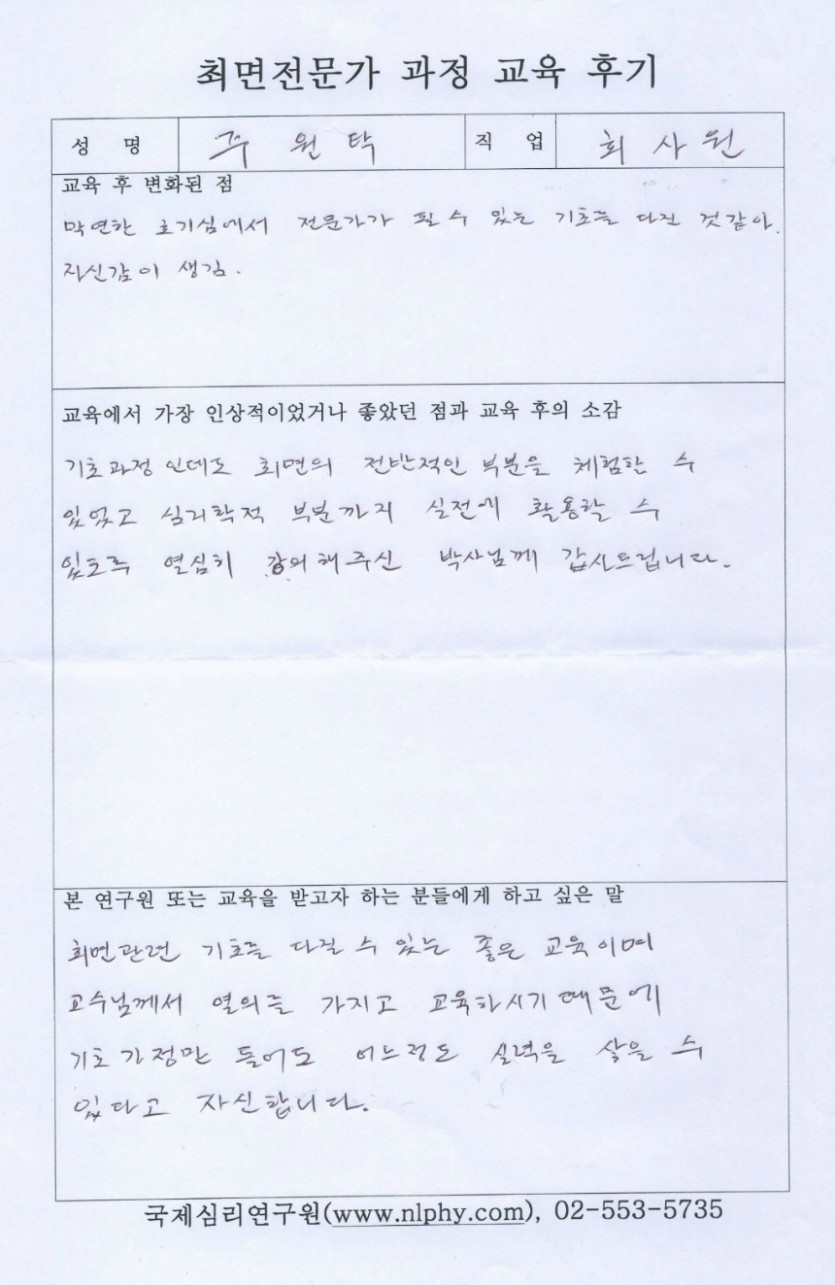 최면전문가 과정 교육 후기
성 명 주원탁 직 업 회사원
교육 후 변화된 점
막연한 호기심에서 전문가가 될 수 있는 기초를 다진 것 같아.
자신감이 생김.
교육에서 가장 인상적이었거나 좋았던 점과 교육 후의 소감
기초과정 인데도 최면의 전반적인 부분을 체험할 수
있었고 심리학적 부분까지 실전에 활용할 수
있도록 열심히 강의해주신 박사님께 감사드립니다.
본 연구원 또는 교육을 받고자 하는 분들에게 하고 싶은 말
최면관련 기초를 다질 수 있는 좋은 교육이며
교수님께서 열의를 가지고 교육하시기 때문에
기초과정만 들어도 어느정도 실력을 쌓을 수
있다고 자신합니다.
국제심리연구원(www.nlphy.com), 02-553-5735